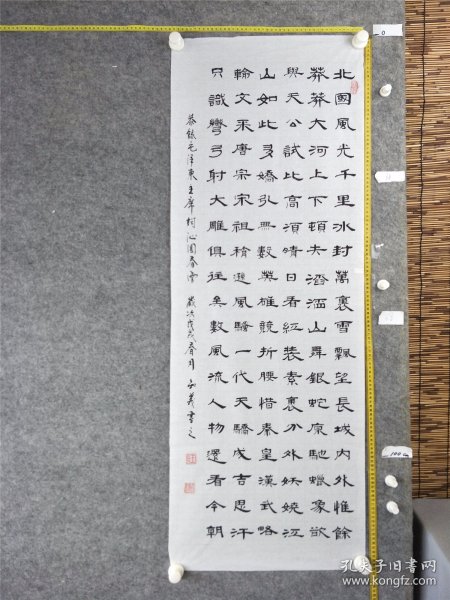 北國風光千里冰封萬裏雪飄望長城內外惟餘
莽莽大河上下頓失滔滔山舞銀蛇原馳蠟象欲
與天公試比高須晴日看紅裝素裹分外妖嬈江
山如此多嬌引無數英雄競折腰惜秦皇漢武略
輸文采唐宗宋祖稍遜風騷一代天驕成吉思汗
只識彎弓射大雕俱往矣數風流人物還看今朝
恭錄毛泽东主席詞沁園春雪 歲次戊戌春月 義書之
0
100cm
孔夫子旧书网
www.kongfz.com